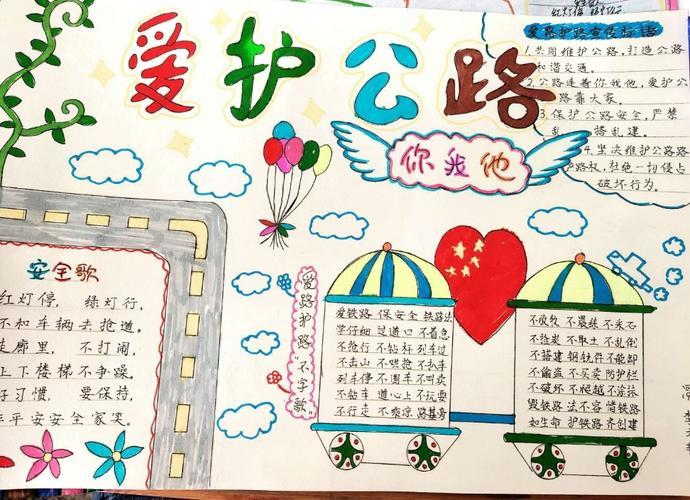 爱护公路
你我他
爱路护路宣传标语
1.共同维护公路,打造公路
和谐交通。
2.公路连着你我他,爱护公
路靠大家。
3.保护公路安全,严禁
乱搭乱建。
4.坚决维护公路路
产路权,杜绝一切侵占
破坏行为。
安全歌
红灯停, 绿灯行,
不和车辆去抢道。
走廊里, 不打闹,
上下楼梯不争躁。
好习惯, 要保持,
平平安安全家笑。
爱路护路"不字歌"
爱铁路 保安全 铁路法
学仔细 过道口 不着急
不抢行 不钻杆 列车过
不击山 不哄抢 不扒车
列车停 不围车 不叫卖
不钻车 道心上 不玩耍
不行走 不乘凉 路基旁
不放牧 不晨练 不采石
不拾炭 不取土 不乱倒
不搭建 钢铁件 不能卸
不偷盗 不买卖 防护栏
不破坏 不爬越 不涂抹
毁铁路 法不容 惜铁路
如生命 护铁路 齐创建